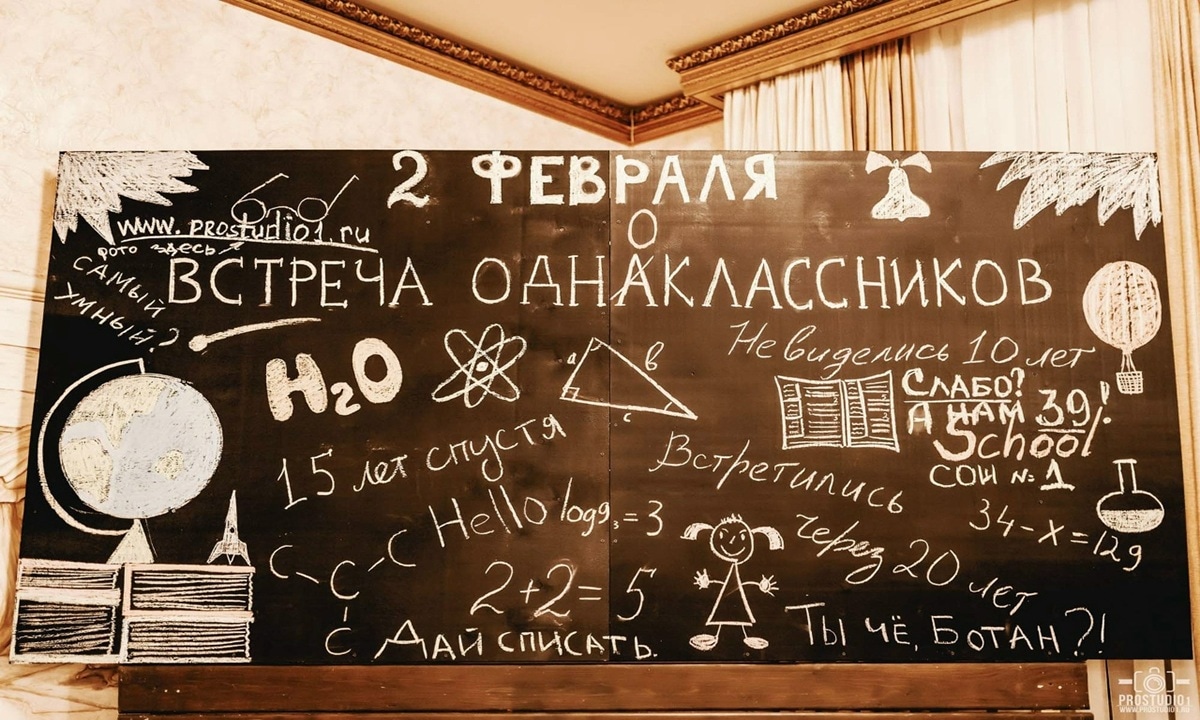 2 ФЕВРАЛЯ
www.prostudio1.ru
фото здесь
САМЫЙ
УМНЫЙ?
О
ВСТРЕЧА ОДНАКЛАССНИКОВ
H2O
a
в
c
Не виделись 10 лет
СЛАБО?
А НАМ 39!
School
СОШ №1
15 лет спустя
Встретились
через 20 лет
Hello
log9₃=3
34-x=129
C C
C
C
2+2=5
ДАЙ СПИСАТЬ.
ТЫ ЧЁ, БОТАН?!
PROSTUDIO1
WWW.PROSTUDIO1.RU